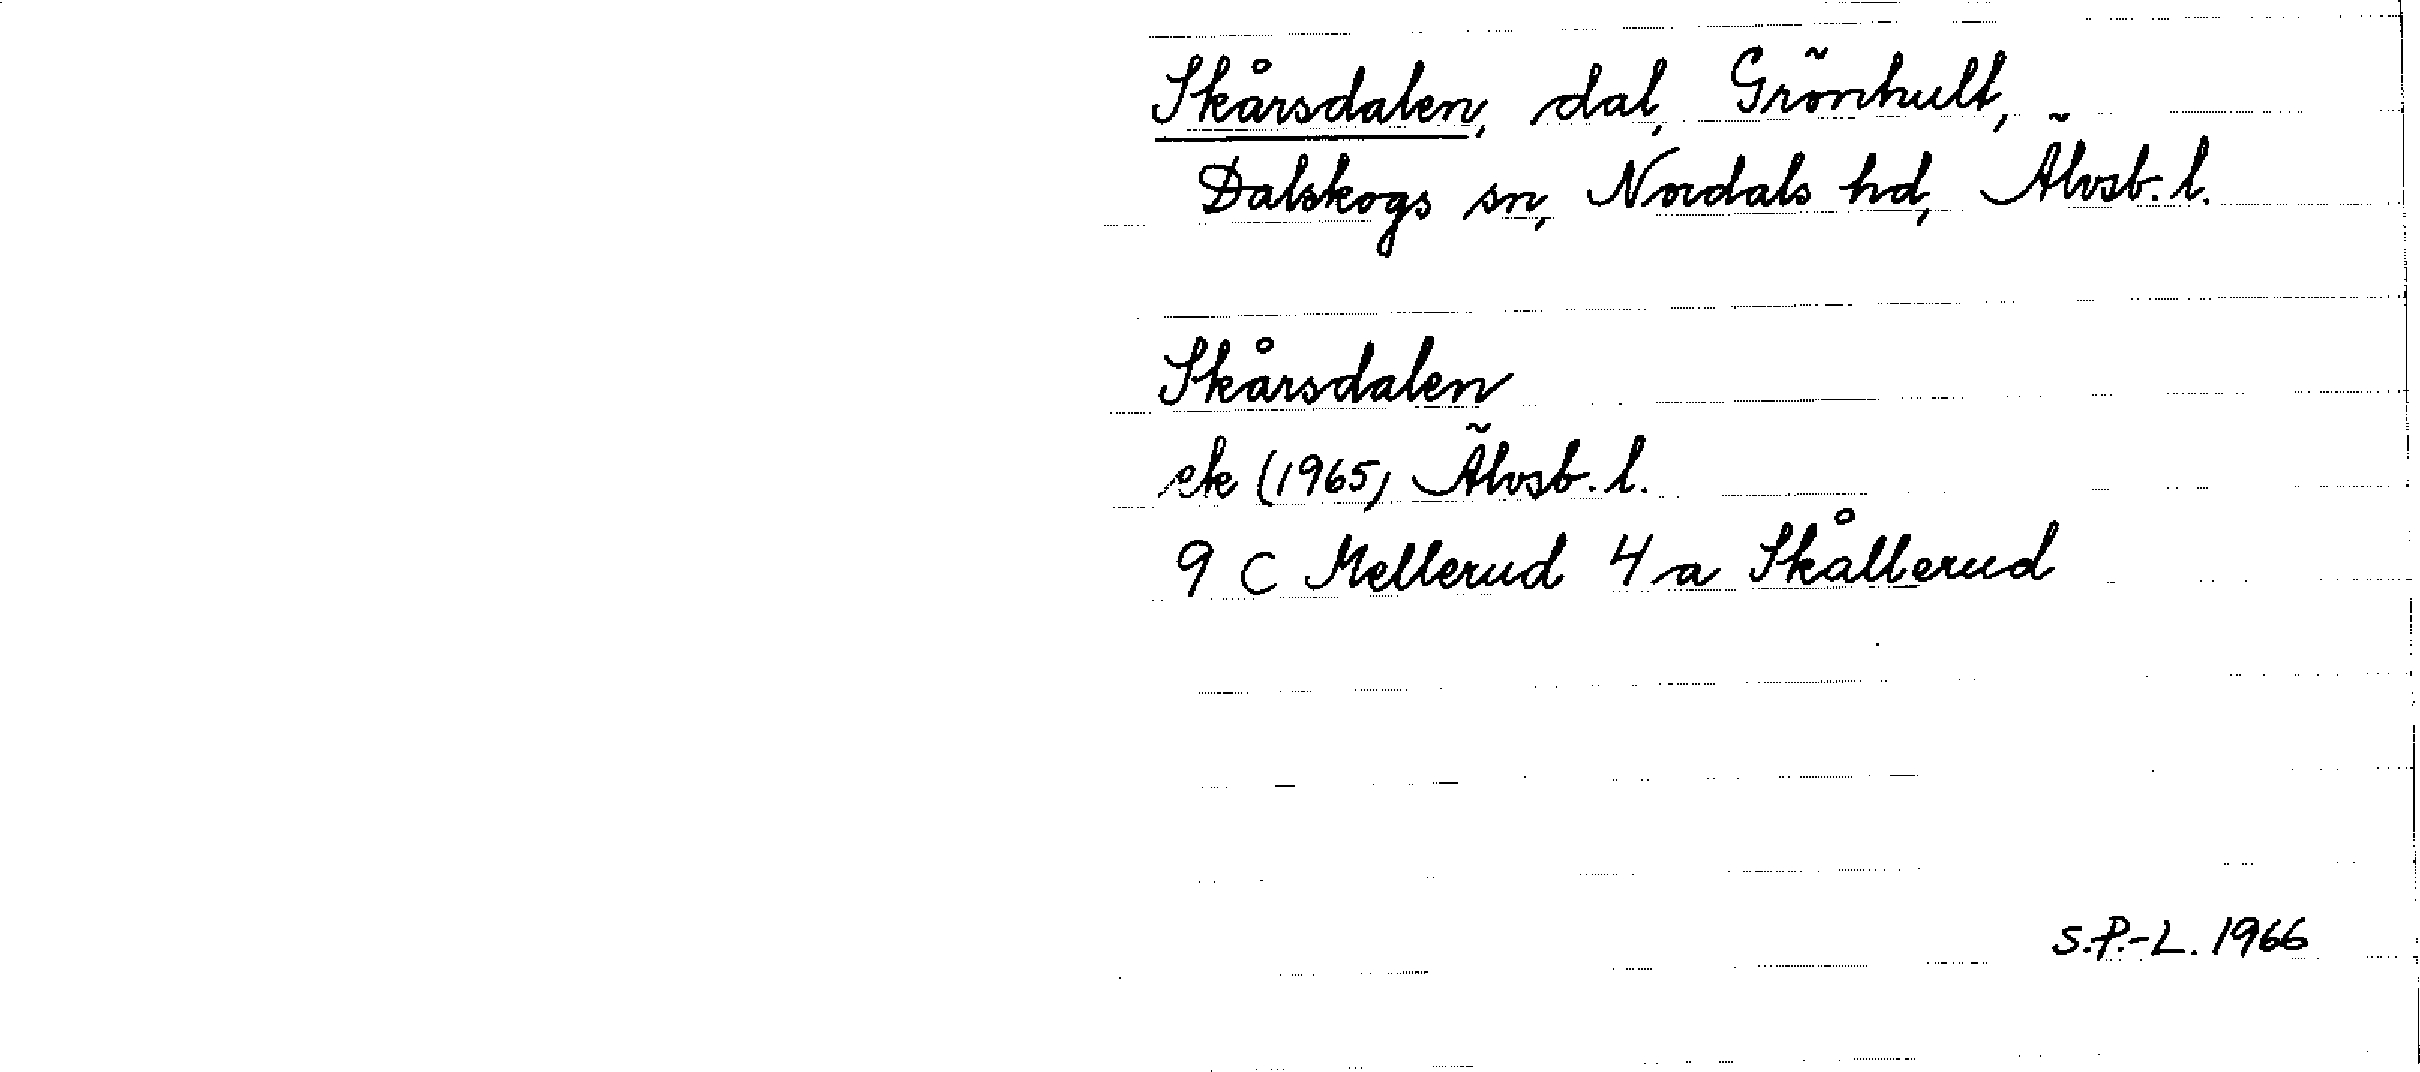 Skårsdalen, dal, Grönhult,
Dalskogs sn, Nordals hd, Älvsb. l.
Skårsdalen
ek (1965) Älvsb. l.
9 C Mellerud 4 a Skållerud
S.P.-L. 1966